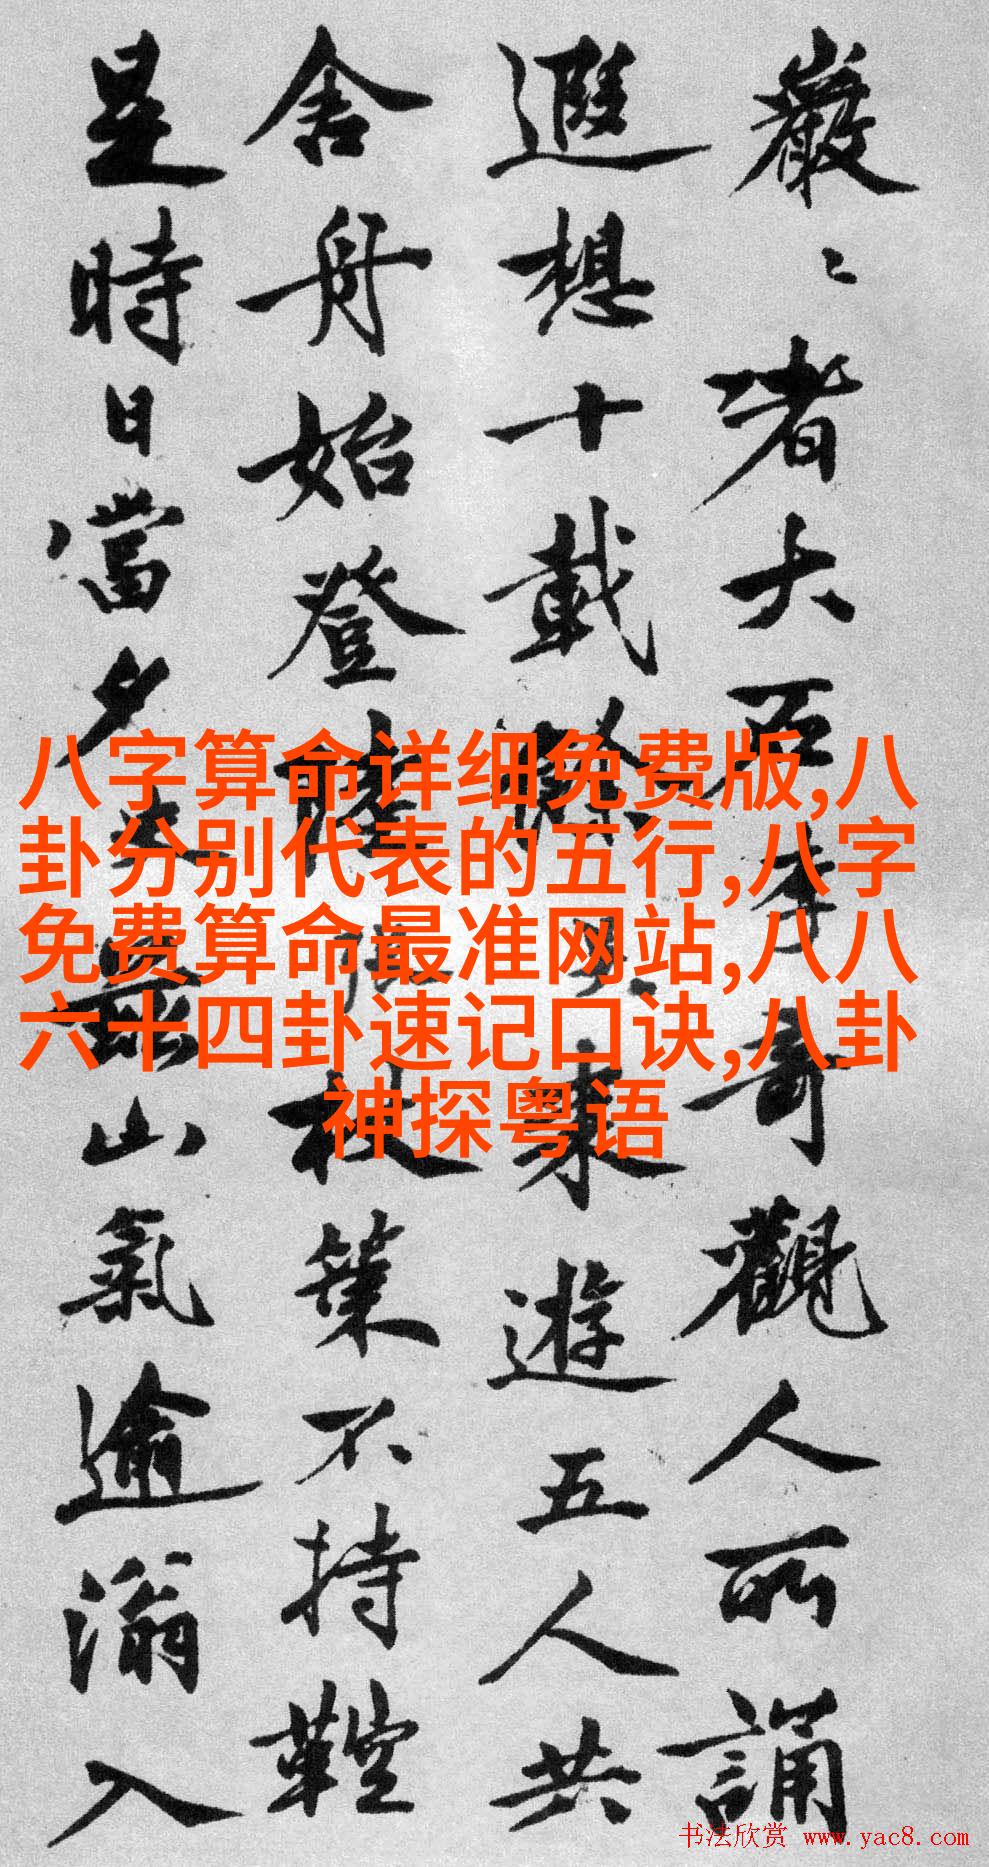 巖〻者大石李哥觀人所誦
遐想十載餘
東遊五人共
舍舟始登陸
杖策不持鞚
是時日當夕
山氣逾滃入
八字算命详细免费版,八
卦分别代表的五行,八字
免费算命最准网站,八八
六十四卦速记口诀,八卦
神探粤语
书法欣赏 www.yac8.com